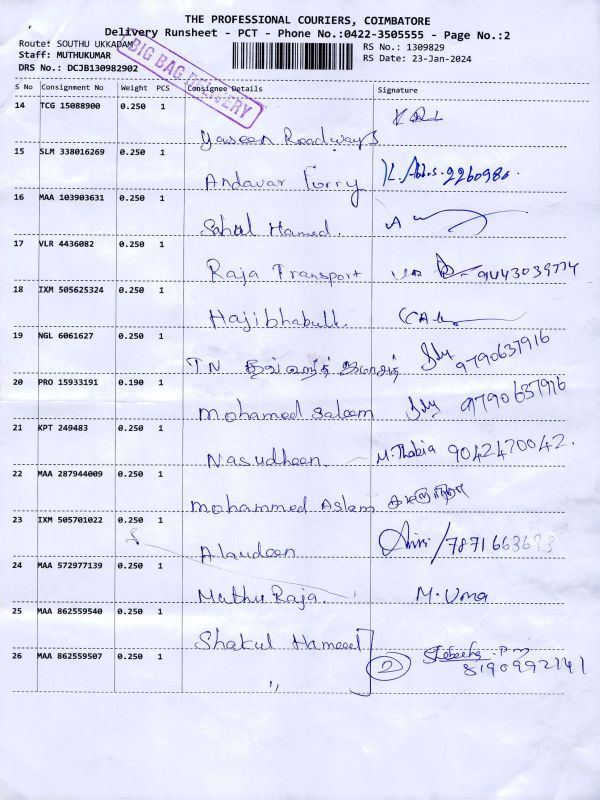 THE PROFESSIONAL COURIERS, COIMBATORE
Delivery Runsheet - PCT - Phone No.:0422-3505555 - Page No.:2
Route: SOUTHU UKKADAM RS No.: 1309829
Staff: MUTHUKUMAR RS Date: 23-Jan-2024
DRS No.: DCJB130982902
BIG BAG DELIVERY
S No Consignment No Weight PCS Consignee Details Signature
14 TCG 15088900 0.250 1
Yaseen Roadways
15 SLM 338016269 0.250 1
Andavar Lorry 2260980
16 MAA 103903631 0.250 1
Sahul Hamed.
17 VLR 4436082 0.250 1
Raja Transport
18 IXM 505625324 0.250 1
Hajibhabull.
19 NGL 6061627 0.250 1
TN 9790637916
20 PRO 15933191 0.190 1
Mohamed Saleem 9790637916
21 KPT 249483 0.250 1
Nasudheen. M. Thabia 9042470042.
22 MAA 287944009 0.250 1
Mohammed Aslam
23 IXM 505701022 0.250 1
Alaudeen
24 MAA 572977139 0.250 1
Muthu Raja. M. Uma
25 MAA 862559540 0.250 1
Shakul Hameed
26 MAA 862559507 0.250 1
" 2 8190992141